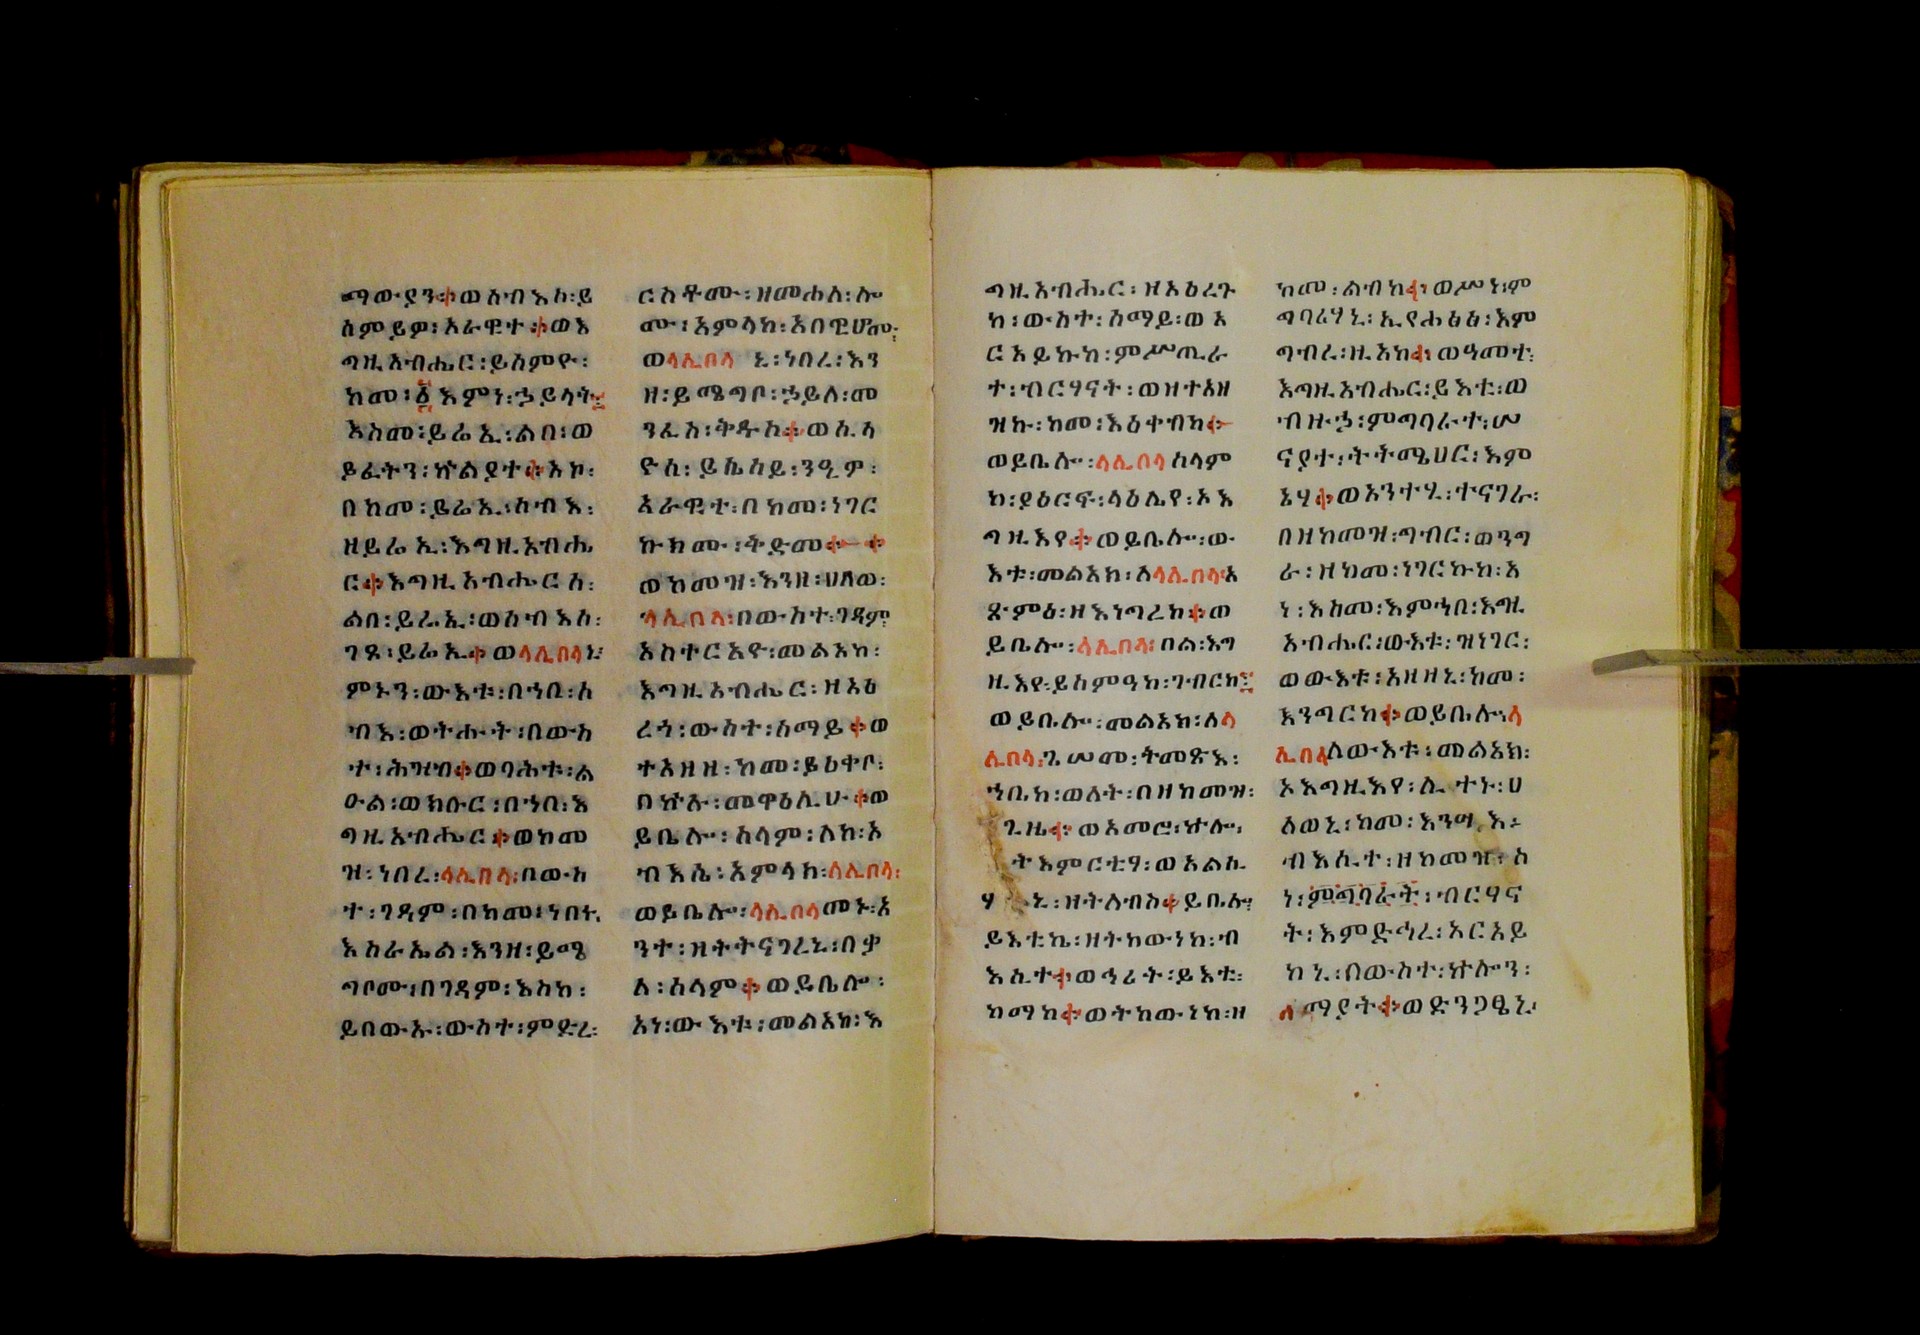 ማውያን። ወሰብእሰ፡ይ
ሰምይዎ፡አራዊተ። ወእ
ግዚአብሔር፡ይሰምዮ፡
ከመ፡፩እምነ፡ኃይላት፤
እስመ፡ይሬኢ፡ልበ፡ወ
ይፈትን፡ኵልያተ። አኮ፡
በከመ፡ይሬኢ፡ሰብእ፡
ዘይሬኢ፡እግዚአብሔ
ር። እግዚአብሔርሰ፡
ልበ፡ይሬኢ፡ወሰብእሰ፡
ገጸ፡ይሬኢ። ወላሊበላኒ፡
ምኑን፡ውእቱ፡በኀበ፡ሰ
ብእ፡ወትሑት፡በውስ
ተ፡ሕዝብ። ወባሕቱ፡ል
ዑል፡ወክቡር፡በኀበ፡እ
ግዚአብሔር። ወከመ
ዝ፡ነበረ፡ላሊበላ፡በውስ
ተ፡ገዳም፡በከመ፡ነበሩ
እስራኤል፡እንዘ፡ይሜ
ግቦሙ፡በገዳም፡እስከ፡
ይበውኡ፡ውስተ፡ምድረ፡
ርስቶሙ፡ዘመሐለ፡ሎ
ሙ፡አምላክ፡አበዊሆሙ፡
ወላሊበላ ኒ፡ነበረ፡እን
ዘ፡ይሜግቦ፡ኃይለ፡መ
ንፈስ፡ቅዱስ። ወሲሳ
ዮሰ፡ይኤስይ፡ንዒዎ፡
አራዊተ፡በከመ፡ነገር
ኩክሙ፡ቅድመ።
ወከመዝ፡እንዘ፡ሀለወ፡
ላሊበላ፡በውስተ፡ገዳም፡
አስተርአዮ፡መልአከ፡
እግዚአብሔር፡ዘአዕ
ረጎ፡ውስተ፡ሰማይ። ወ
ተአዘዘ፡ከመ፡ይዕቀቦ፡
በኵሉ፡መዋዕሊሁ። ወ
ይቤሎ፡ሰላም፡ለከ፡አ
ብእሴ፡አምላክ፡ላሊበላ፡
ወይቤሎ፡ላሊበላመኑ፡አ
ንተ፡ዘትትናገረኒ፡በቃ
ለ፡ሰላም። ወይቤሎ፡
አነ፡ውእቱ፡መልአከ፡እ
ግዚአብሔር፡ዘአዕረጉ
ከ፡ውስተ፡ሰማይ፡ወአ
ርአይኩከ፡ምሥጢራ
ተ፡ብርሃናት፡ወዘተአዘ
ዝኩ፡ከመ፡እዕቀብከ።
ወይቤሎ፡ላሊበላሰላም
ከ፡ያዕርፍ፡ላዕሌየ፡ኦእ
ግዚእየ። ወይቤሎ፡ው
እቱ፡መልአክ፡ለላሊበላ፡አ
ጽምዕ፡ዘእነግረከ። ወ
ይቤሎ፡ላሊበላ፡በል፡እግ
ዚእየ፡ይሰምዓከ፡ገብርከ፤
ወይቤሎ፡መልአክ፡ለላ
ሊበላ፡ጌሠመ፡ትመጽእ፡
ኀቤከ፡ወለት፡በዘከመዝ፡
ጊዜ። ወአመሮ፡ኵሎ፡
ትእምርቲሃ፡ወአልባ
ሃ ኒ፡ዘትለብስ። ይቤሎ፡
ይእቲኬ፡ዘትከውነከ፡ብ
እሲተ። ወኅሪት፡ይእቲ፡
ከማከ። ወትከውነከ፡ዘ
ከመ፡ልብከ። ወሥነ፡ም
ግባሪሃኒ፡ኢየሐፅፅ፡እም
ግብረ፡ዚአከ። ወዓመተ፡
እግዚአብሔር፡ይእቲ፡ወ
ብዙኃ፡ምግባራተ፡ሠ
ናያተ፡ትትሜሀር፡እም
ኔሃ። ወአንተሂ፡ተናገራ፡
በዘከመዝ፡ግብር፡ወንግ
ራ፡ዘከመ፡ነገርኩከ፡አ
ነ፡እስመ፡እምኀበ፡እግዚ
አብሔር፡ውእቱ፡ዝነገር፡
ወውእቱ፡አዘዘኒ፡ከመ፡
እንግርከ። ወይቤሎ፡ላ
ሊበላለውእቱ፡መልአክ፡
ኦእግዚእየ፡ሊተኑ፡ሀ
ለወኒ፡ከመ፡እንሣእ፡
ብእሲተ፡ዘከመዝ፡ሰ
ነ፡ምግባራት፡ብርሃና
ት፡እምድኅረ፡አርአይ
ከኒ፡በውስተ፡ኵሎን፡
ሰማያት። ወድንጋፄኒ፡